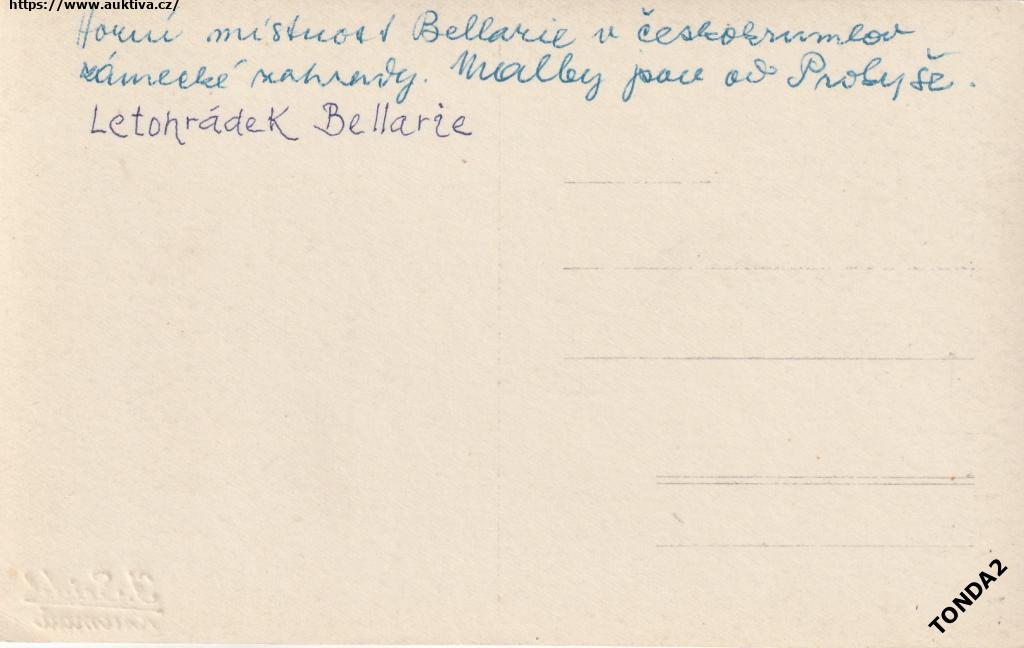 https://www.auktiva.cz/
Horní místnost Bellarie v českokrumlov
zámecké zahrady. Malby jsou od Prokyše.
Letohrádek Bellarie
TONDA2